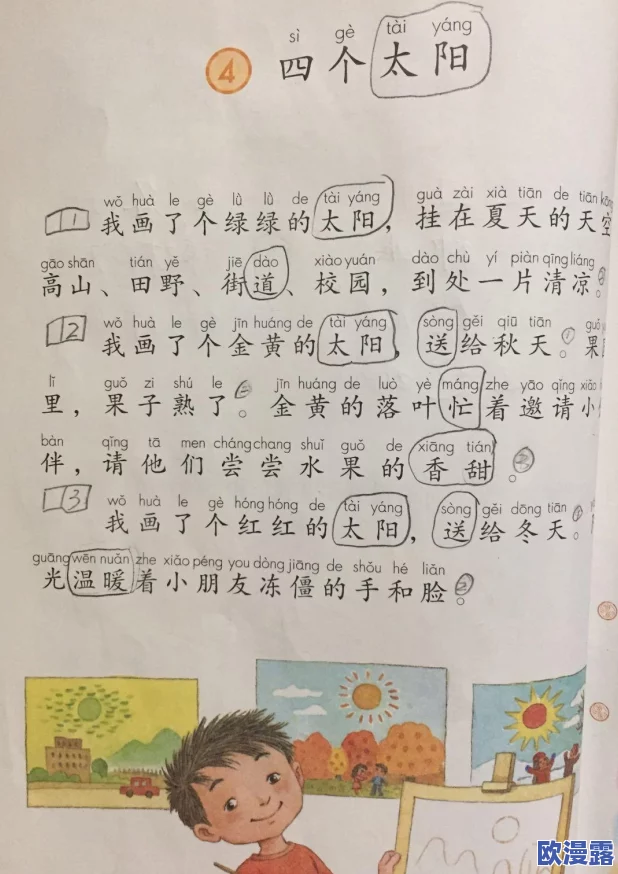 sì gè tài yáng
4 四个太阳
wǒ huà le gè lǜ lǜ de tài yáng guà zài xià tiān de tiān kōng
1 我画了个绿绿的太阳，挂在夏天的天空
gāo shān tián yě jiē dào xiào yuán dào chù yí piàn qīng liáng
高山、田野、街道、校园，到处一片清凉。
wǒ huà le gè jīn huáng de tài yáng sòng gěi qiū tiān
2 我画了个金黄的太阳，送给秋天。①果
lǐ guǒ zi shú le jīn huáng de luò yè máng zhe yāo qǐng xiǎo
里，果子熟了。②金黄的落叶忙着邀请小
bàn qǐng tā men cháng chang shuǐ guǒ de xiāng tián
伴，请他们尝尝水果的香甜。③
wǒ huà le gè hóng hóng de tài yáng sòng gěi dōng tiān
3 我画了个红红的太阳，送给冬天。①
guāng wēn nuǎn zhe xiǎo péng you dòng jiāng de shǒu hé liǎn
光温暖着小朋友冻僵的手和脸。②
欧漫露